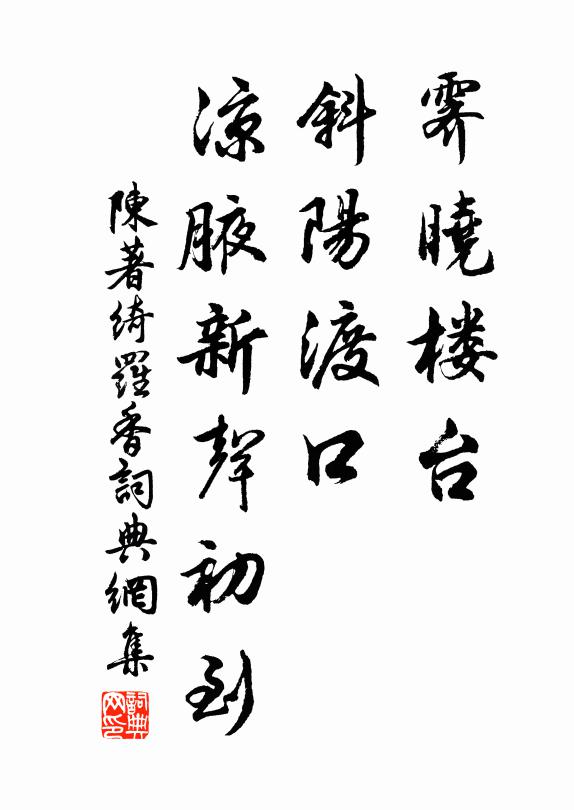 霁曉楼台
斜陽渡口
涼腋新聲初到
陳著綺羅香詞典網集
詞典网印